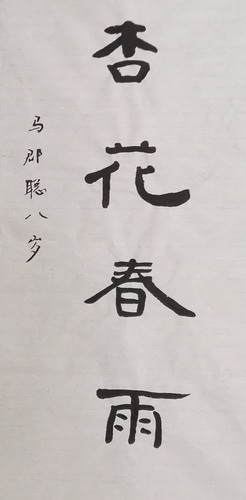 杏花春雨
马郡聪八岁